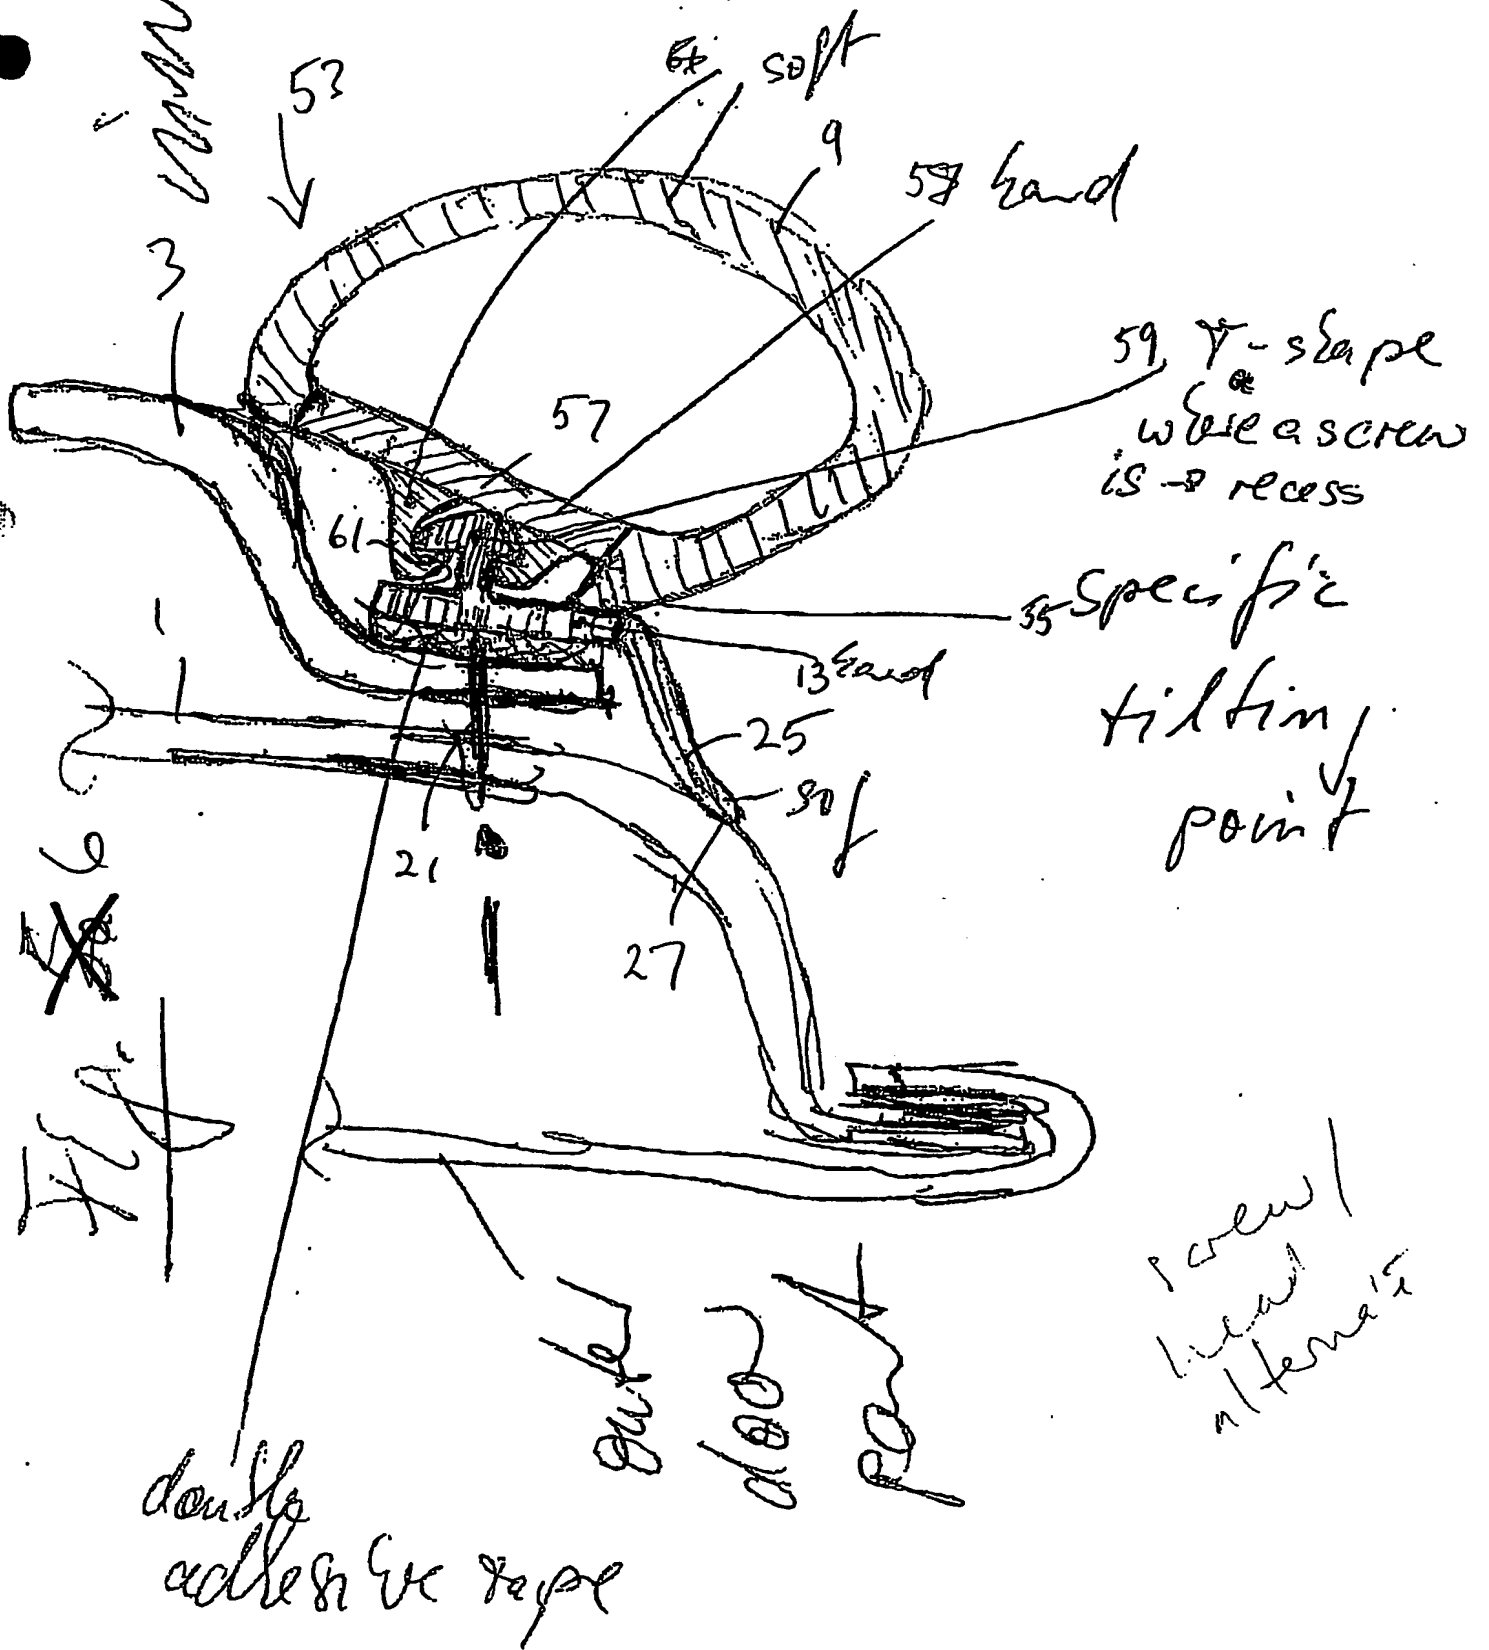 53
soft
9
58 hard
3
59 T-shape
where a screw
is → recess
57
61
55
specific
tilting
point
13 hard
1
25
sof
21
27
6
FIG.
outer
door
part
screw
head
alternate
double
adhesive tape